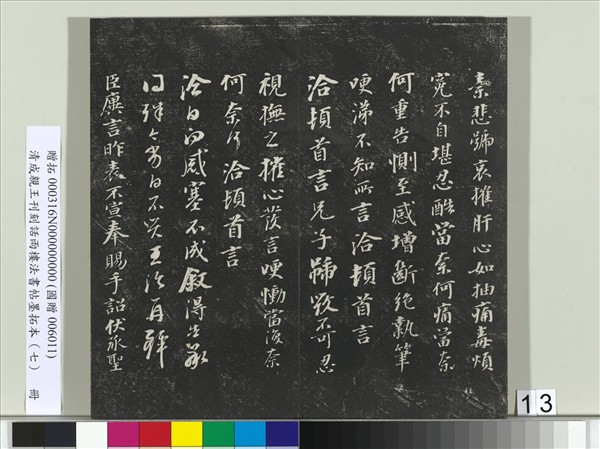 素悲號哀摧肝心如抽痛毒煩
冤不自堪忍酷當奈何痛當奈
何重告惻至感增斷絕執筆
哽涕不知所言洽頓首言
洽頓首言兄子號毀不可忍
視撫之摧心發言哽慟當復奈
何奈何洽頓首言
洽白向感塞不成敘得告承
不具王洽再拜
臣廙言昨表不宣奉賜手詔伏承聖
贈拓 000316N000000000 (國贈 006011)
清成親王刊刻話雨樓法書帖墨拓本(七) 冊
13